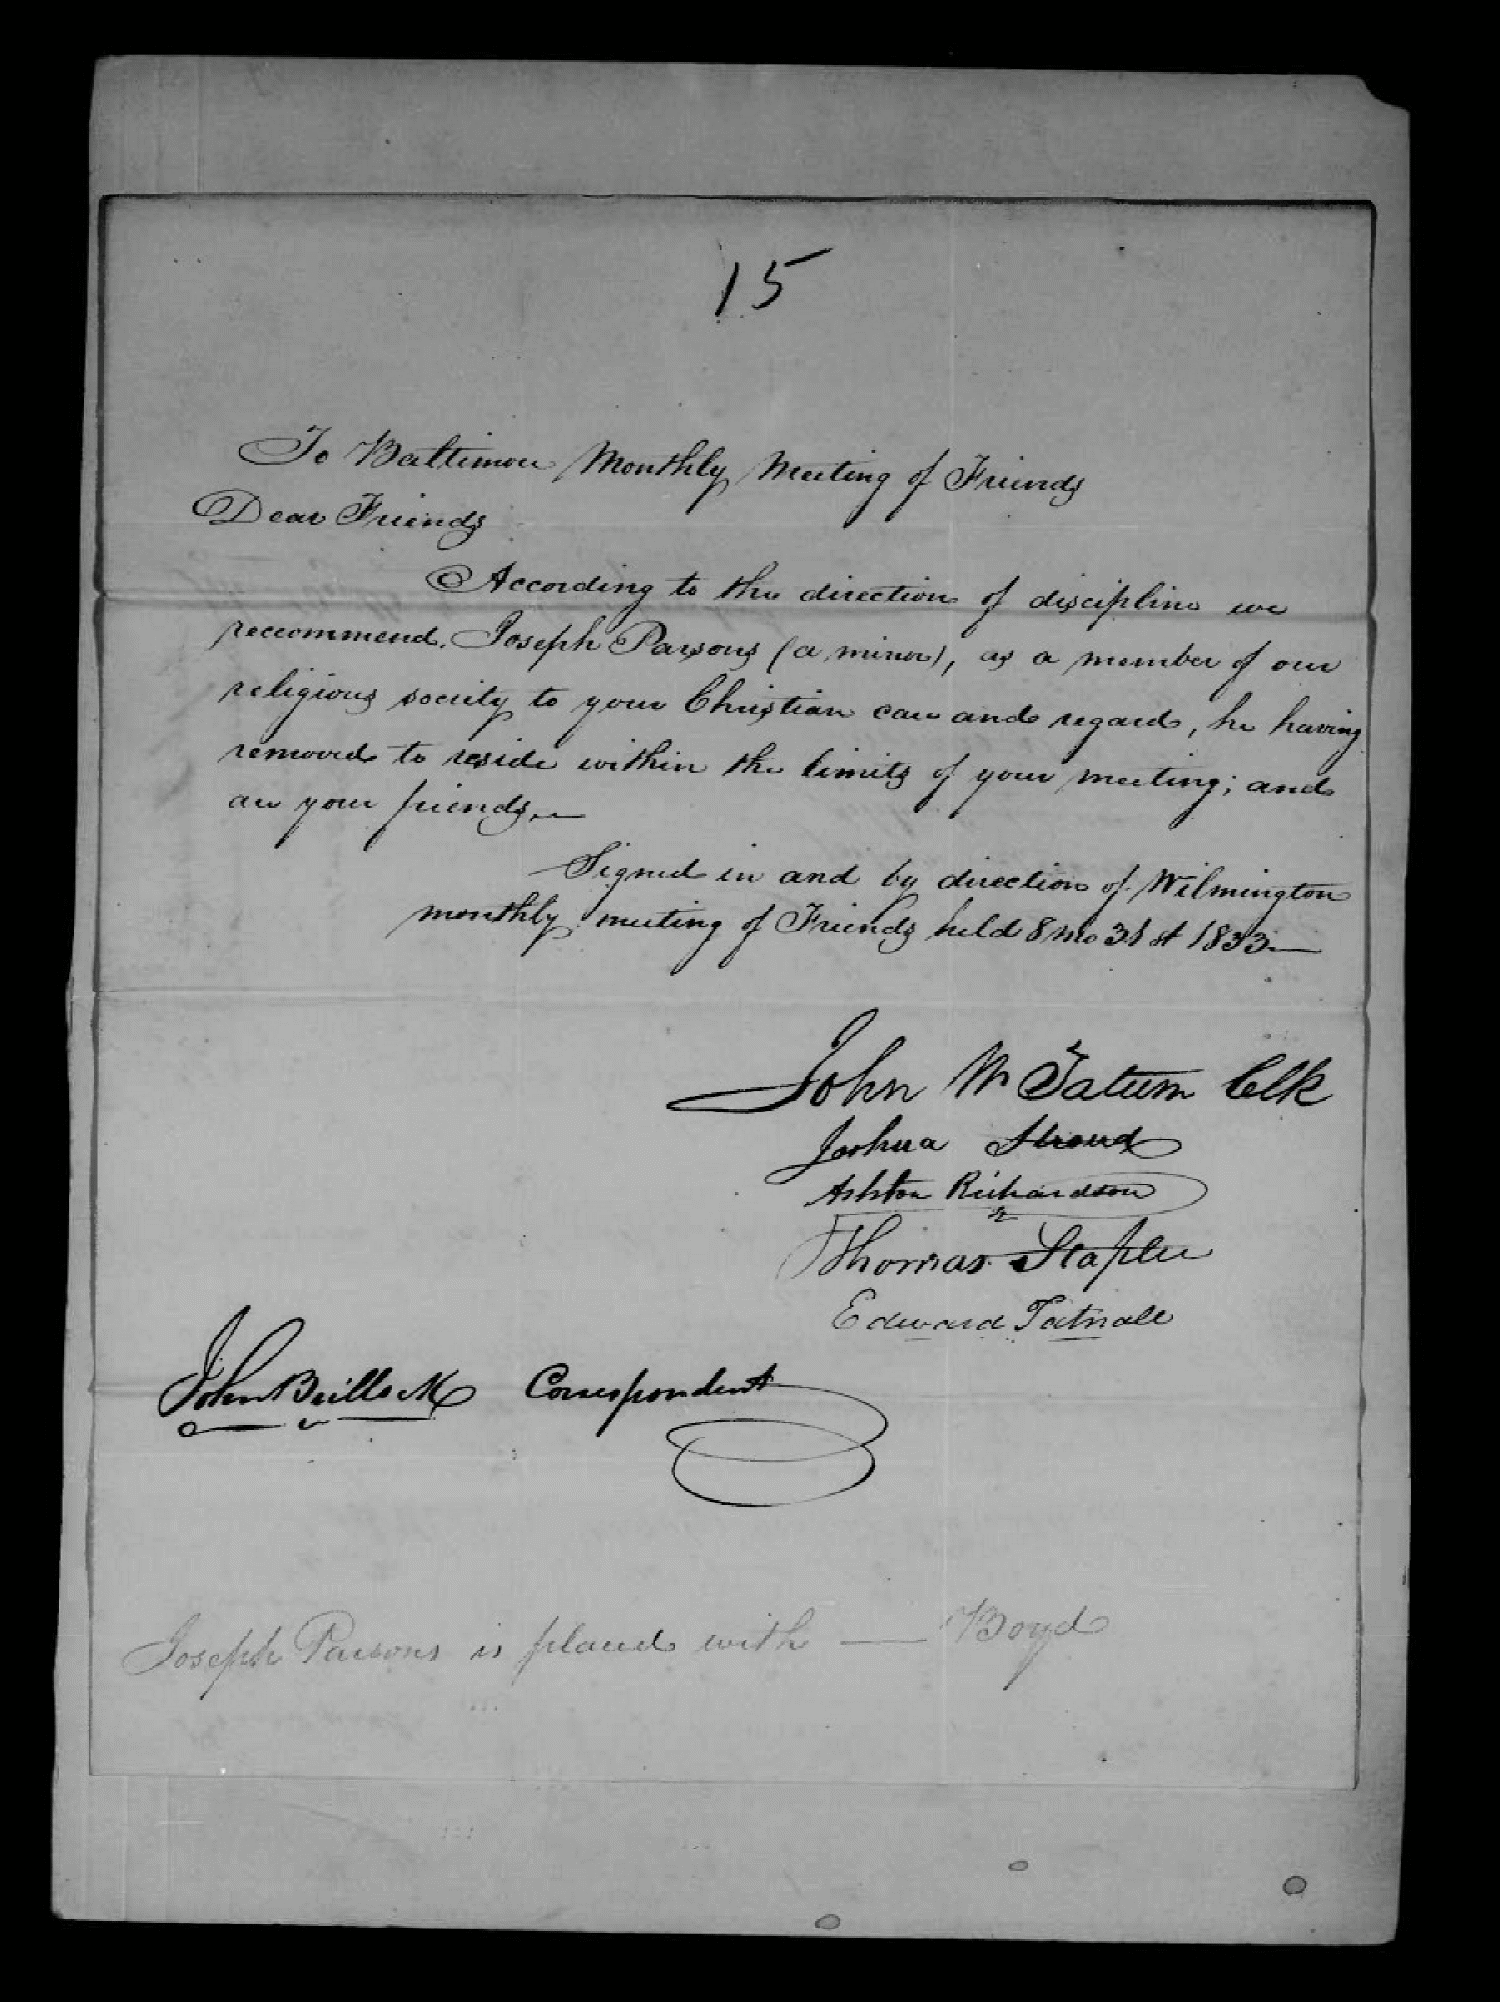 15
To Baltimore Monthly Meeting of Friends
Dear Friends
According to the direction of discipline we
reccommend. Joseph Parsons (a minor), as a member of our
religious society to your Christian care and regard, he having
removed to reside within the limits of your meeting; and
are your friends.—
Signed in and by direction of Wilmington
monthly meeting of Friends held 8 mo 31st 1833.—
John W Tatum Clk
Joshua Stroud
Ashton Richardson
Thomas Stapler
Edward Tatnall
John Bullock Correspondent
Joseph Parsons is placed with — Boyd